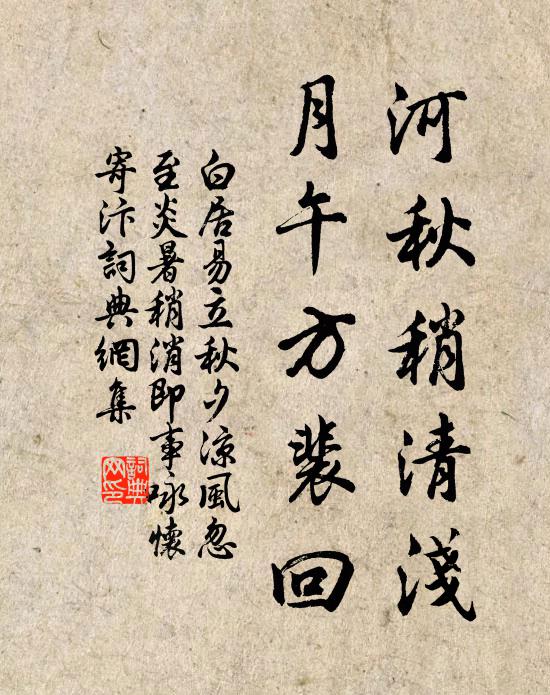 河秋稍清淺
月午方裴回
白居易立秋夕涼風忽
至炎暑稍消即事咏懷
寄汴詞典網集
詞典網印